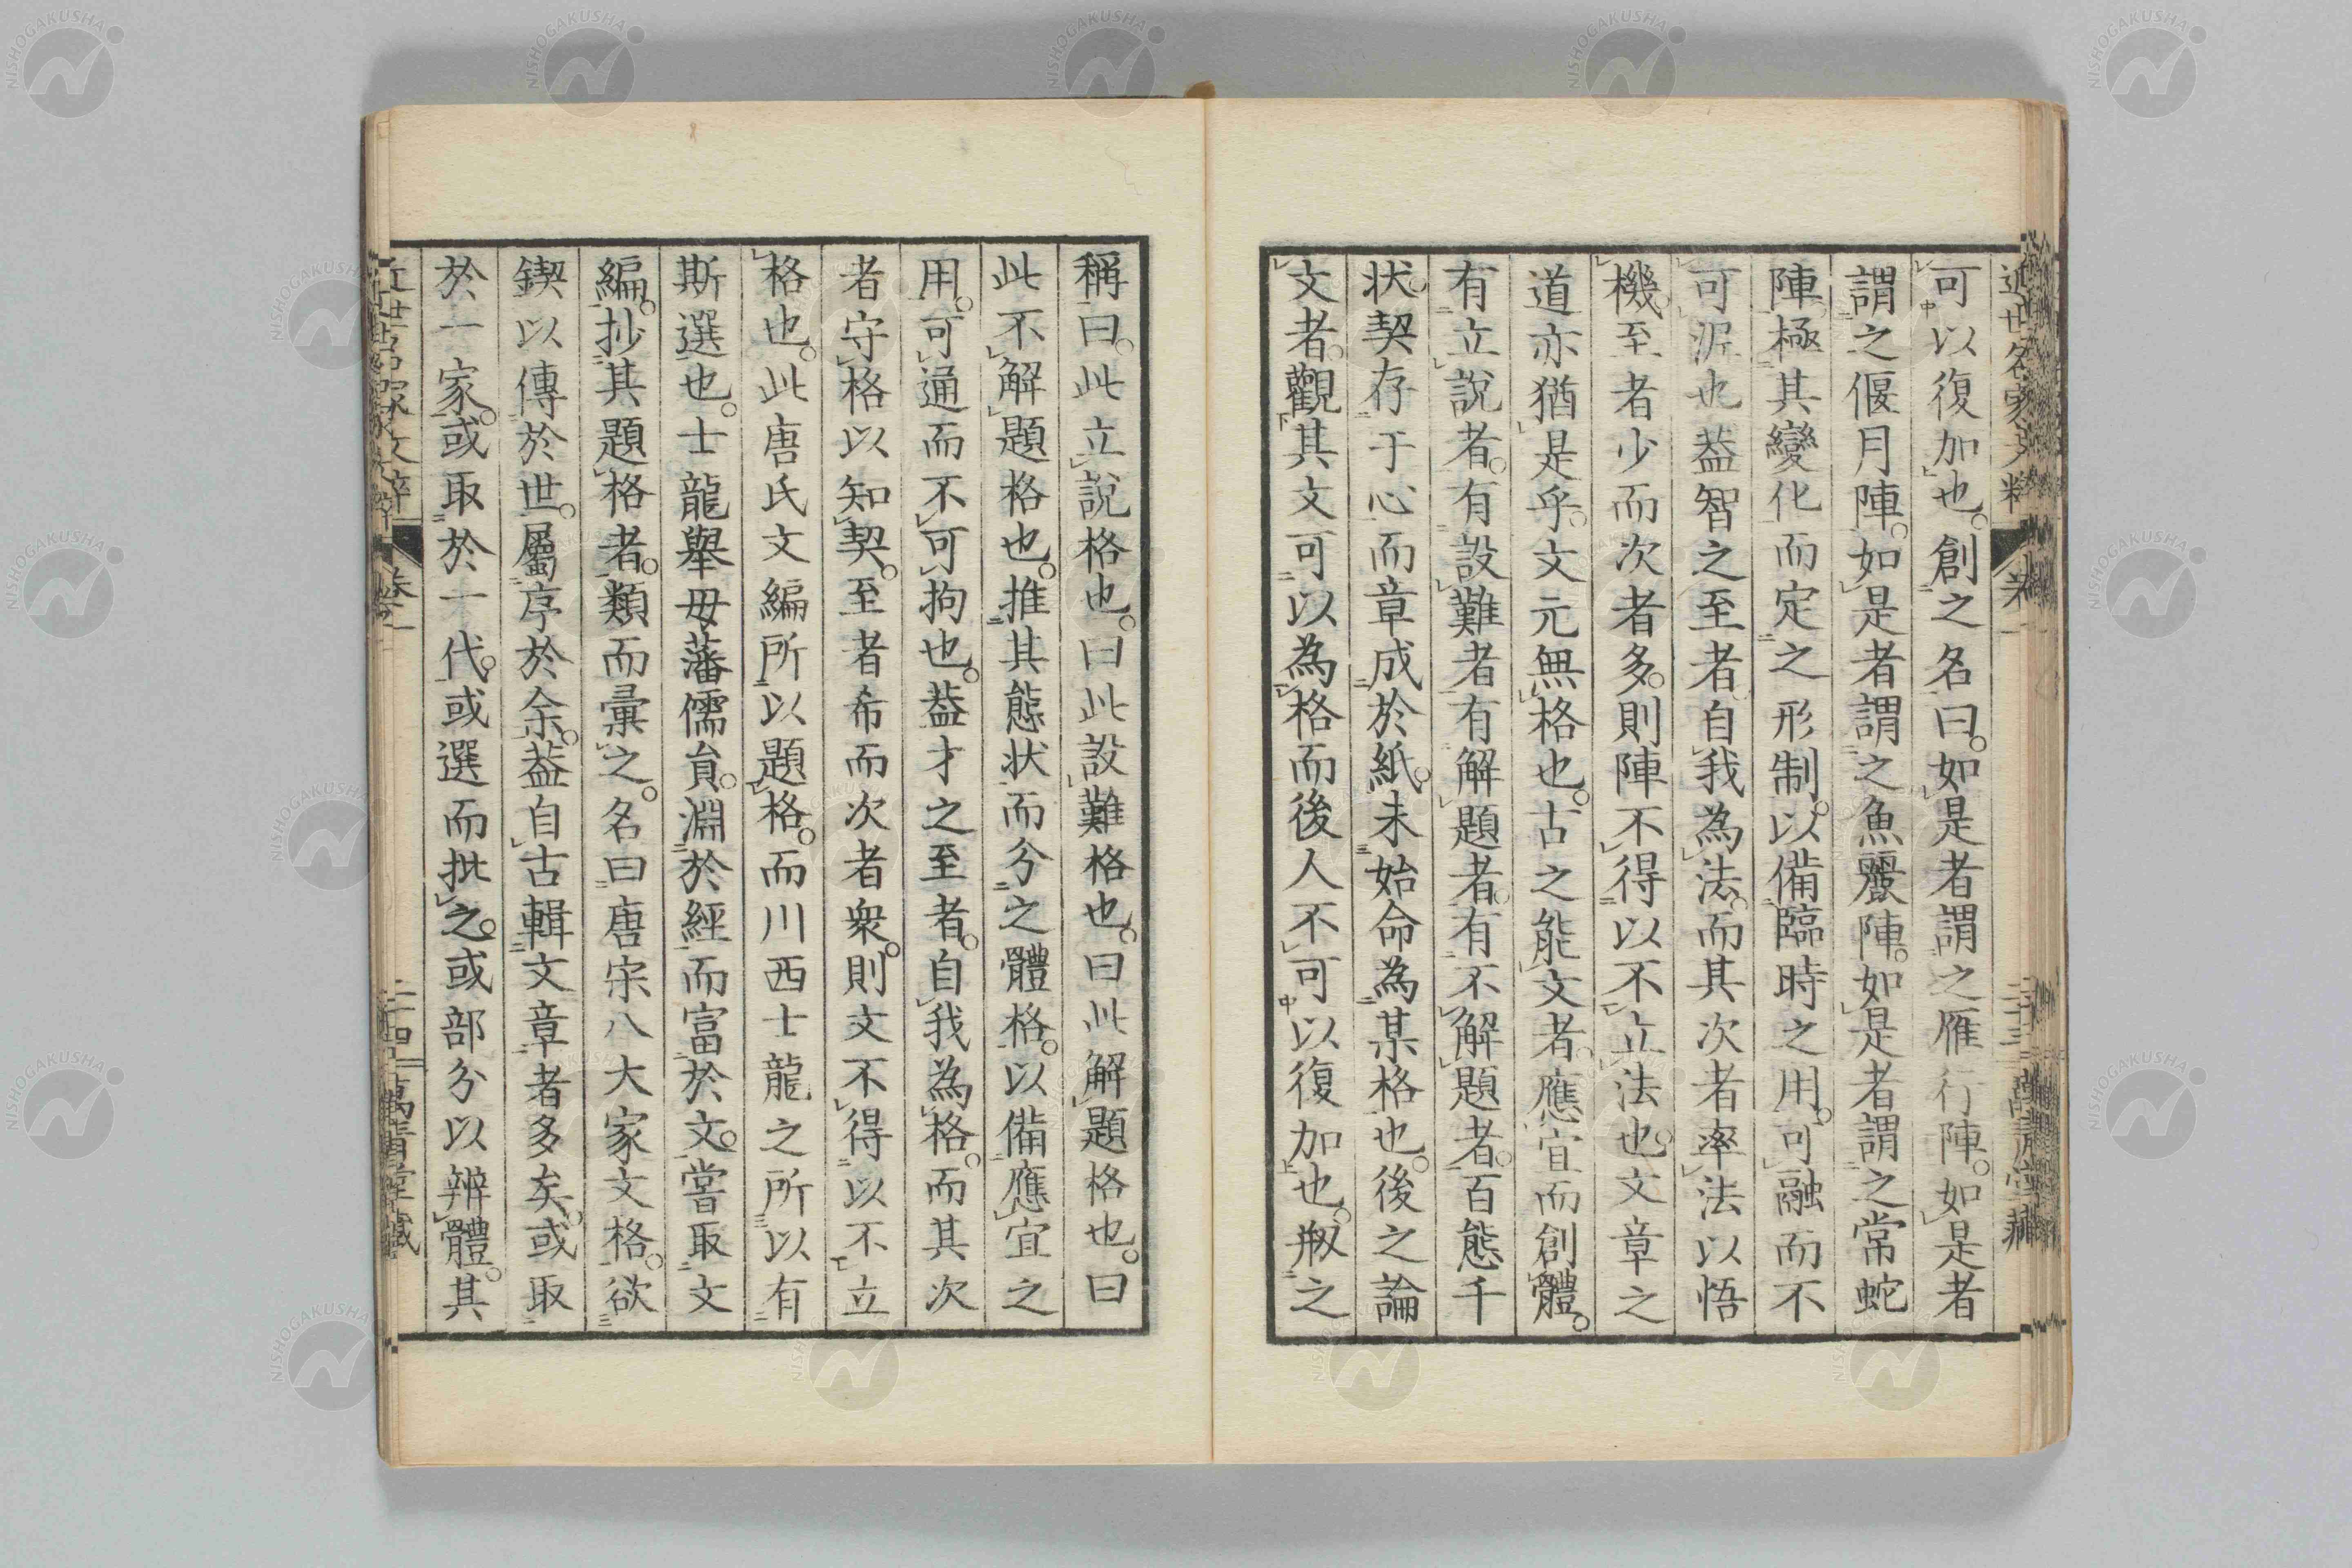 可以復加也。創之名曰。如是者謂之雁行陣。如是者
謂之偃月陣。如是者謂之魚麗陣。如是者謂之常蛇
陣。極其變化而定之形制。以備臨時之用。可融而不
可泥也。葢智之至者。自我為法。而其次者率法以悟
機。至者少而次者多。則陣不得以不立法也。文章之
道亦猶是乎。文元無格也。古之能文者。應宜而創體。
有立說者。有設難者。有解題者。有不解題者。百態千
狀。契存于心而章成於紙。未始命為某格也。後之論
文者。觀其文可以為格而後人不可以復加也。叛之
稱曰。此立說格也。曰此設難格也。曰此解題格也。曰
此不解題格也。推其態状而分之體格。以備應宜之
用。可通而不可拘也。葢才之至者。自我為格。而其次
者守格以知契。至者希而次者衆。則文不得以不立
格也。此唐氏文編所以題格。而川西士龍之所以有
斯選也。士龍舉母藩儒員。淵於經而富於文。嘗取文
編。抄其題格者。類而彙之。名曰唐宋八大家文格。欲
鍥以傳於世。屬序於余。葢自古輯文章者多矣。或取
於一家。或取於一代。或選而批之。或部分以辨體。其
近世名家文粹 卷一 二十三 萬青堂藏
卷一 二十四 萬青堂藏
NISHOGAKUSHA